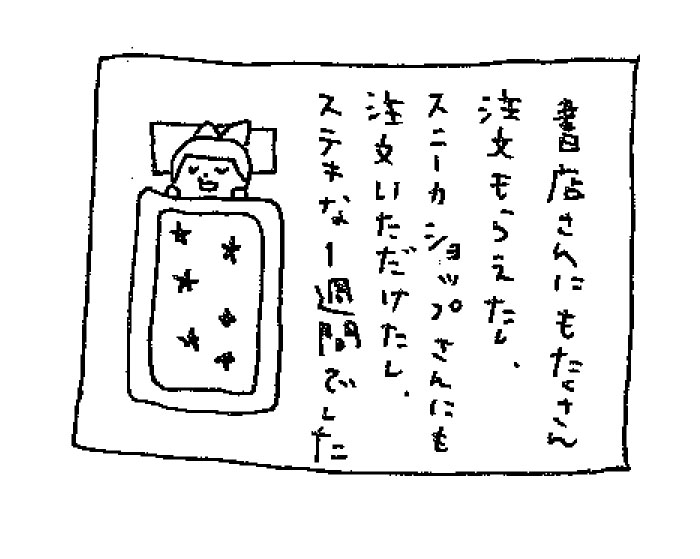 書店さんにもたくさん
注文もらえたし、
スニーカショップさんにも
注文いただけたし、
ステキな1週間でした